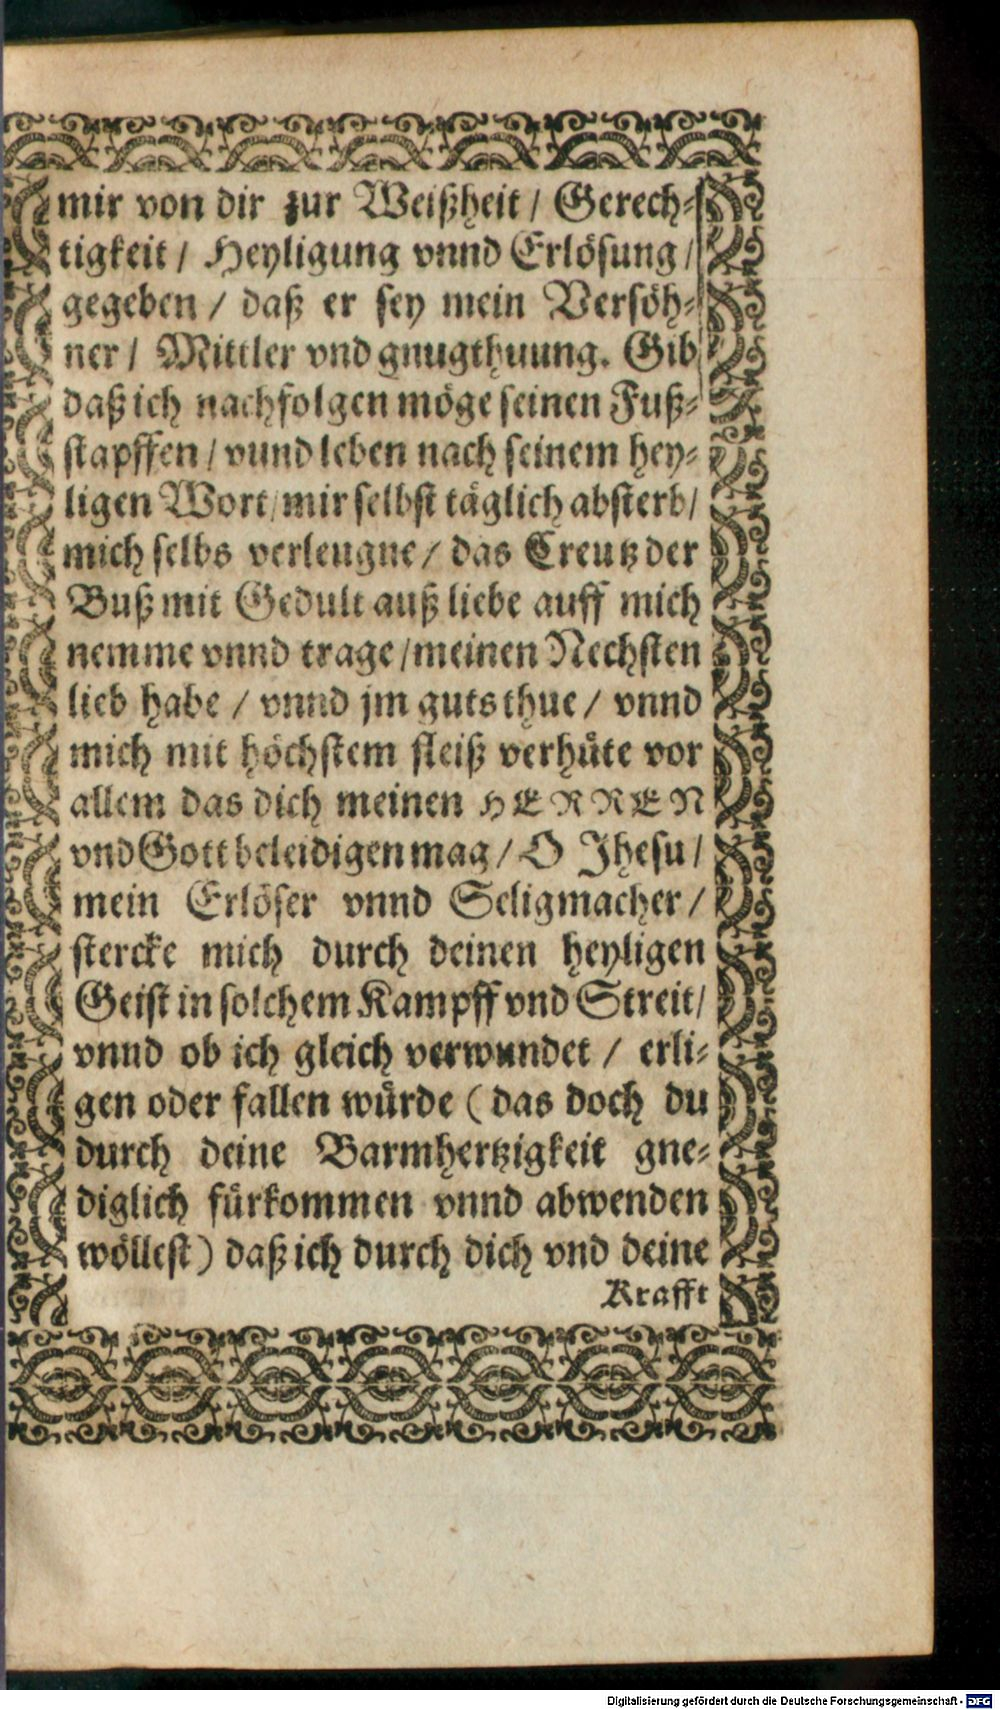 mir von dir zur Weißheit / Gerech-
tigkeit / Heyligung vnnd Erlösung /
gegeben / daß er sey mein Versöh-
ner / Mittler vnd gnugthuung. Gib
daß ich nachfolgen möge seinen Fuß-
stapffen / vund leben nach seinem hey-
ligen Wort / mir selbst täglich absterb /
mich selbs verleugne / das Creutz der
Buß mit Gedult auß liebe auff mich
nemme vnnd trage / meinen Nechsten
lieb habe / vnnd jm guts thue / vnnd
mich mit höchstem fleiß verhüte vor
allem das dich meinen HERREN
vnd Gott beleidigen mag / O Jhesu /
mein Erlöser vnnd Seligmacher /
stercke mich durch deinen heyligen
Geist in solchem Kampff vnd Streit /
vnnd ob ich gleich verwundet / erli-
gen oder fallen würde (das doch du
durch deine Barmhertzigkeit gne-
diglich fürkommen vnnd abwenden
wöllest) daß ich durch dich vnd deine
Krafft
Digitalisierung gefördert durch die Deutsche Forschungsgemeinschaft - DFG